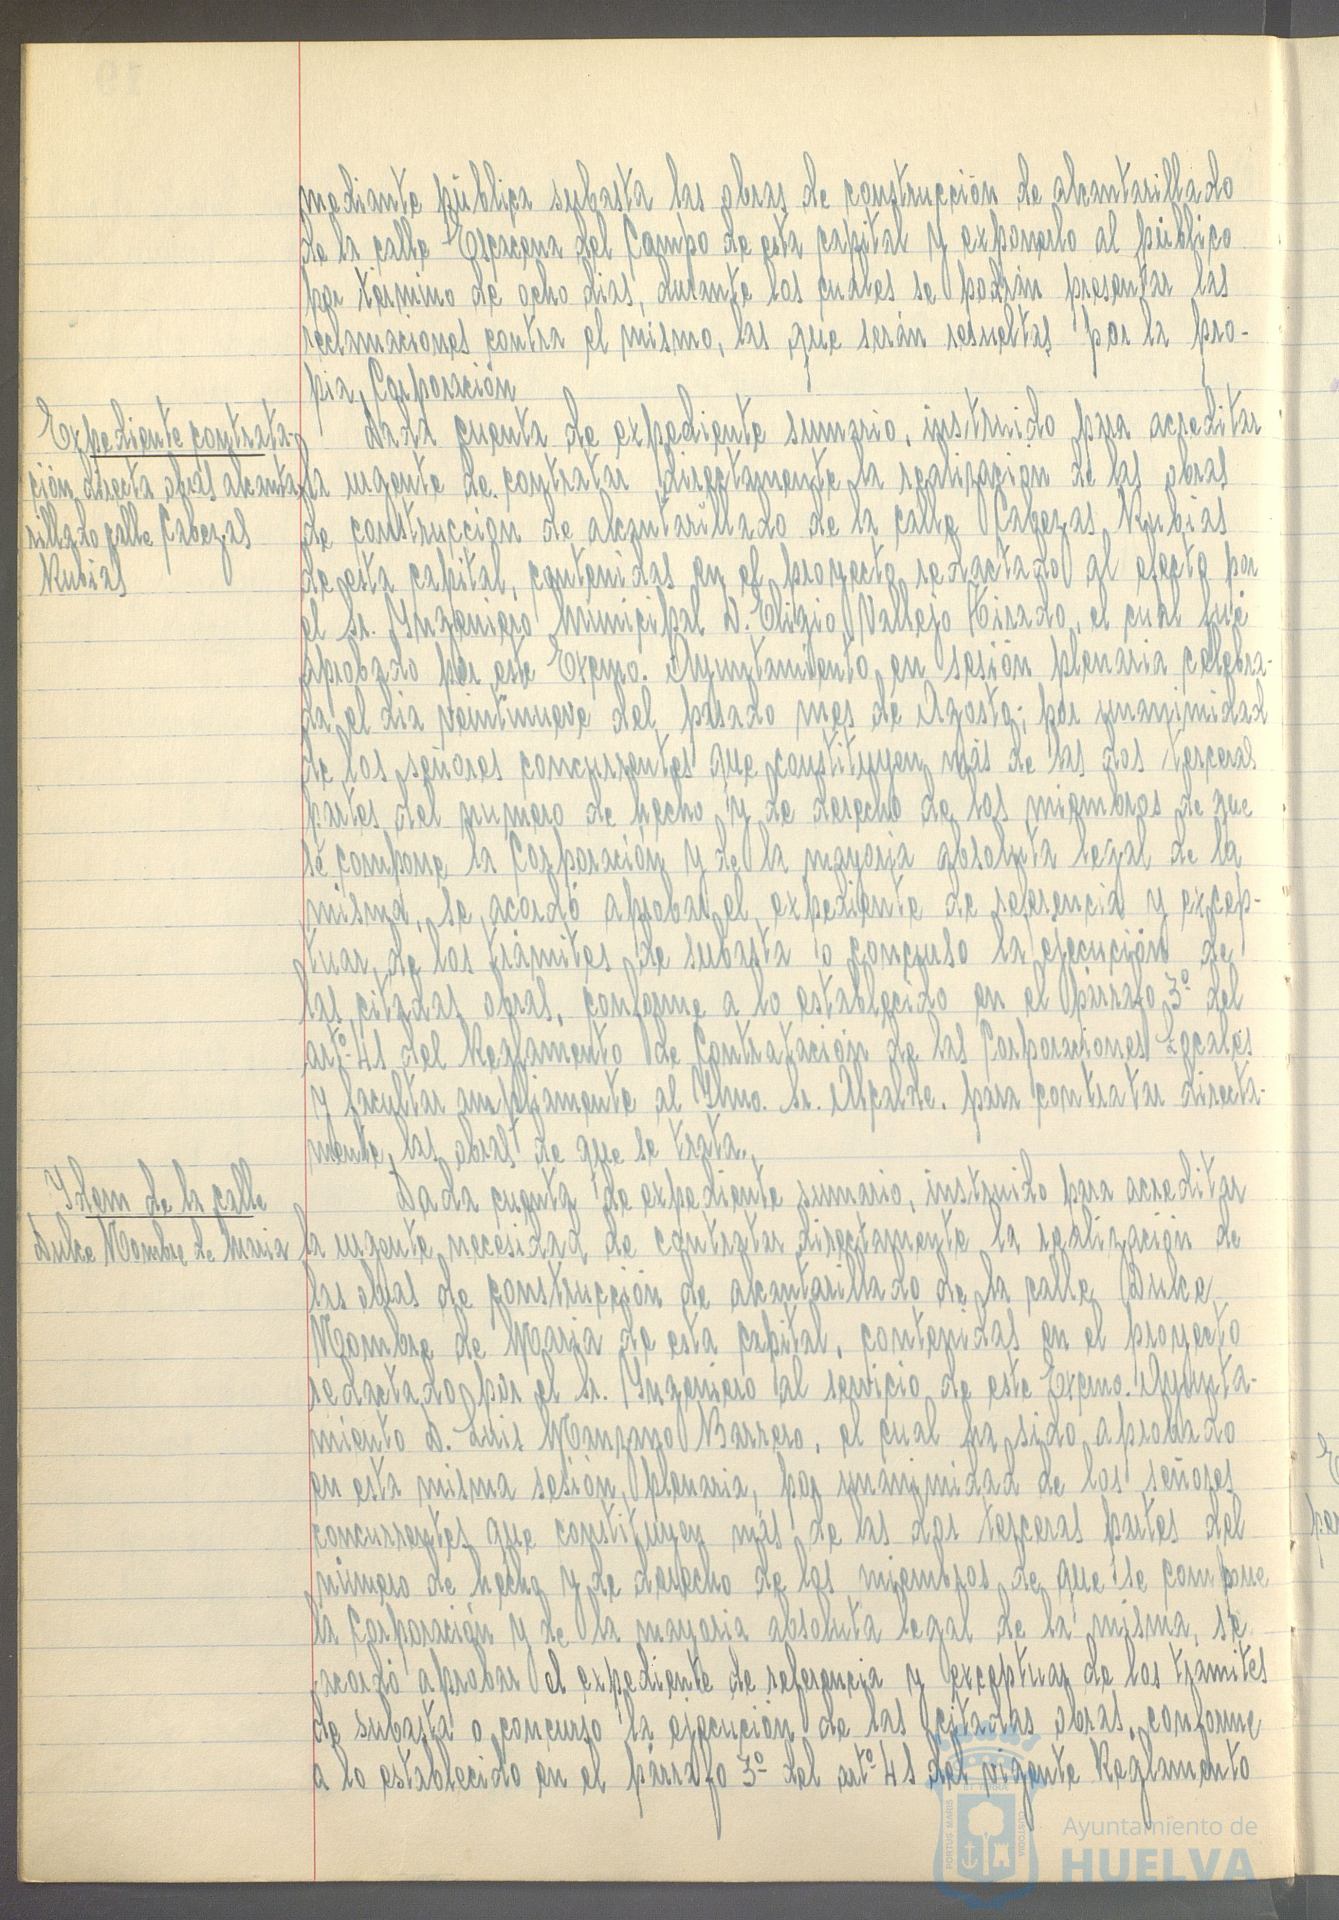 mediante pública subasta las obras de construcción de alcantarillado
de la calle Escacena del Campo de esta capital y exponerlo al público
por término de ocho dias, durante los cuales se podrán presentar las
reclamaciones contra el mismo, las que serán resueltas por la pro-
pia Corporación
Expediente contrata-
ción directa obras alcanta
rillado calle Cabezas
Rubias
Dada cuenta de expediente sumario, instruido para acreditar
la urgente de contratar directamente la realización de las obras
de construcción de alcantarillado de la calle Cabezas Rubias
de esta capital, contenidas en el proyecto redactado al efecto por
el Sr. Ingeniero Municipal D. Eligio Vallejo Tirado, el cual fué
aprobado por este Excmo. Ayuntamiento en sesión plenaria celebra-
da el dia veintinueve del pasado mes de Agosto; por unanimidad
de los señores concurrentes que constituyen más de las dos terceras
partes del número de hecho y de derecho de los miembros de que
se compone la Corporación y de la mayoria absoluta legal de la
misma, se acordó aprobar el expediente de referencia y excep-
tuar de los trámites de subasta o concurso la ejecución de
las citadas obras, conforme a lo establecido en el párrafo 3º del
artº 41 del Reglamento de Contratación de las Corporaciones Locales
y facultar ampliamente al Ilmo. Sr. Alcalde. para contratar directa-
mente las obras de que se trata.
Idem de la calle
Dulce Nombre de Maria
Dada cuenta de expediente sumario, instruido para acreditar
la urgente necesidad de contratar directamente la realización de
las obras de construcción de alcantarillado de la calle Dulce
Nombre de Maria de esta capital, contenidas en el proyecto
redactado por el Sr. Ingeniero al servicio de este Excmo. Ayunta-
miento D. Luis Manzano Barrero, el cual ha sido aprobado
en esta misma sesión plenaria, por unanimidad de los señores
concurrentes que constituyen más de las dos terceras partes del
número de hecho y de derecho de los miembros de que se compone
la Corporación y de la mayoria absoluta legal de la misma, se
acordó aprobar el expediente de referencia y exceptuar de los tramites
de subasta o concurso la ejecución de las citadas obras, conforme
a lo establecido en el párrafo 3º del artº 41 del vigente Reglamento
PORTUS MARIS
CUSTODIA
Ayuntamiento de
HUELVA